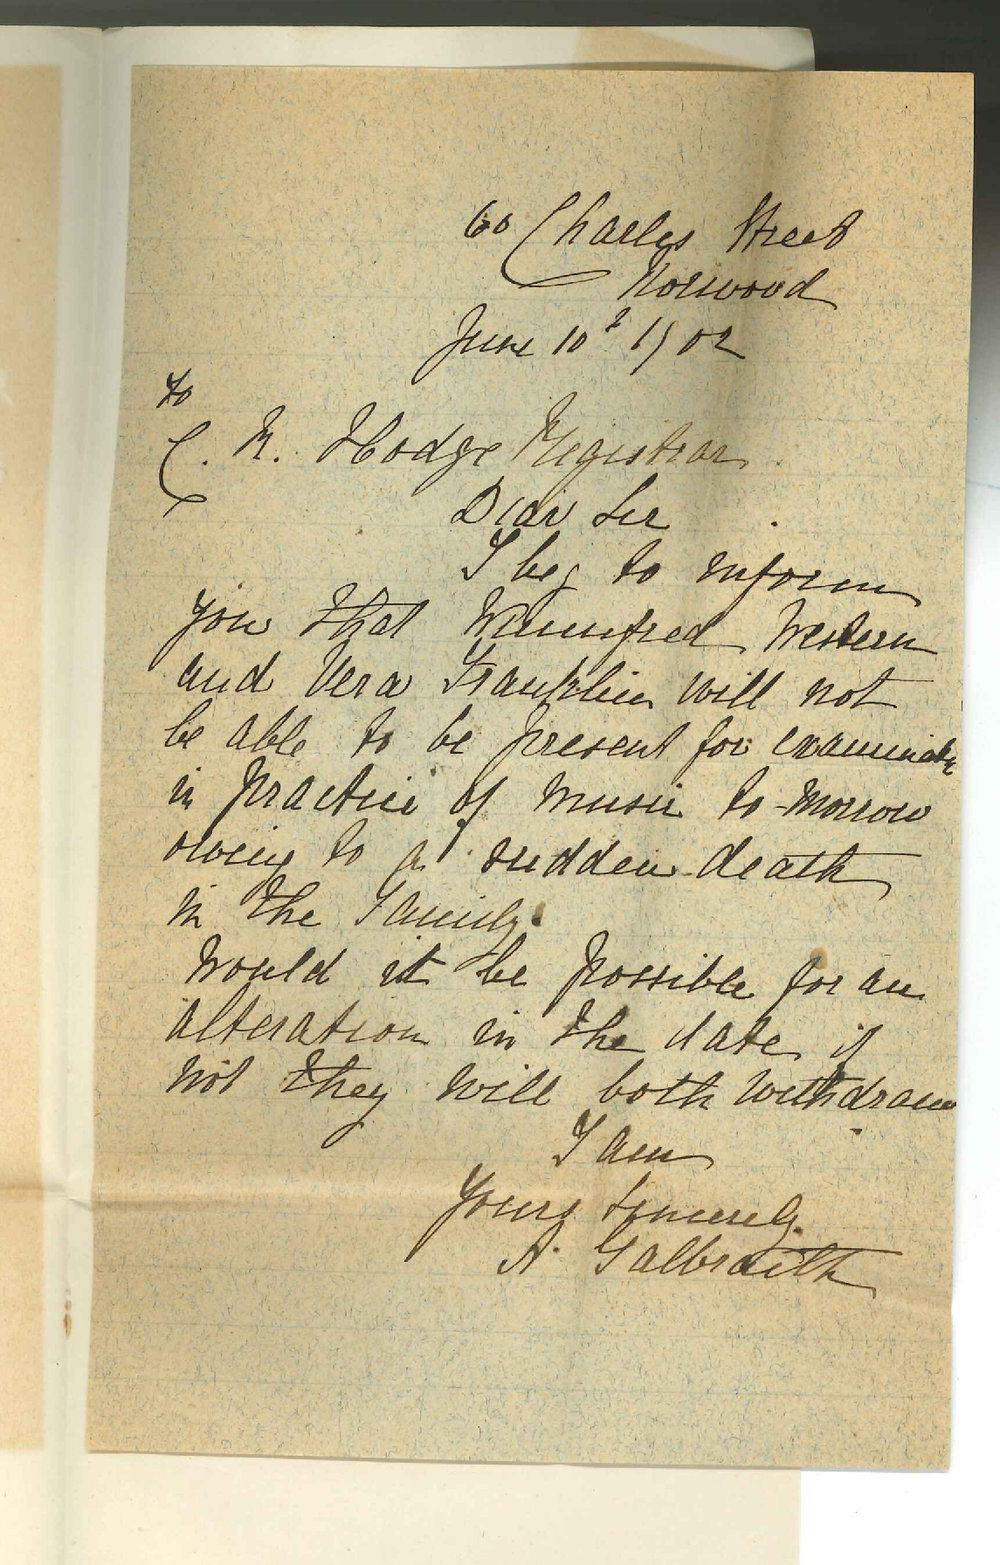 60 Charles Street
Norwood
June 10th 1902
To
C. R. Hodge Registrar
Dear Sir
I beg to inform
you that Winnifred Western
and Vera Franklin will not
be able to be present for examination
in practice of music to-morrow
owing to a sudden death
in the Family.
Would it be possible for an
alteration in the date, if
not they will both withdraw
I am
Yours Sincerely
A. Galbraith